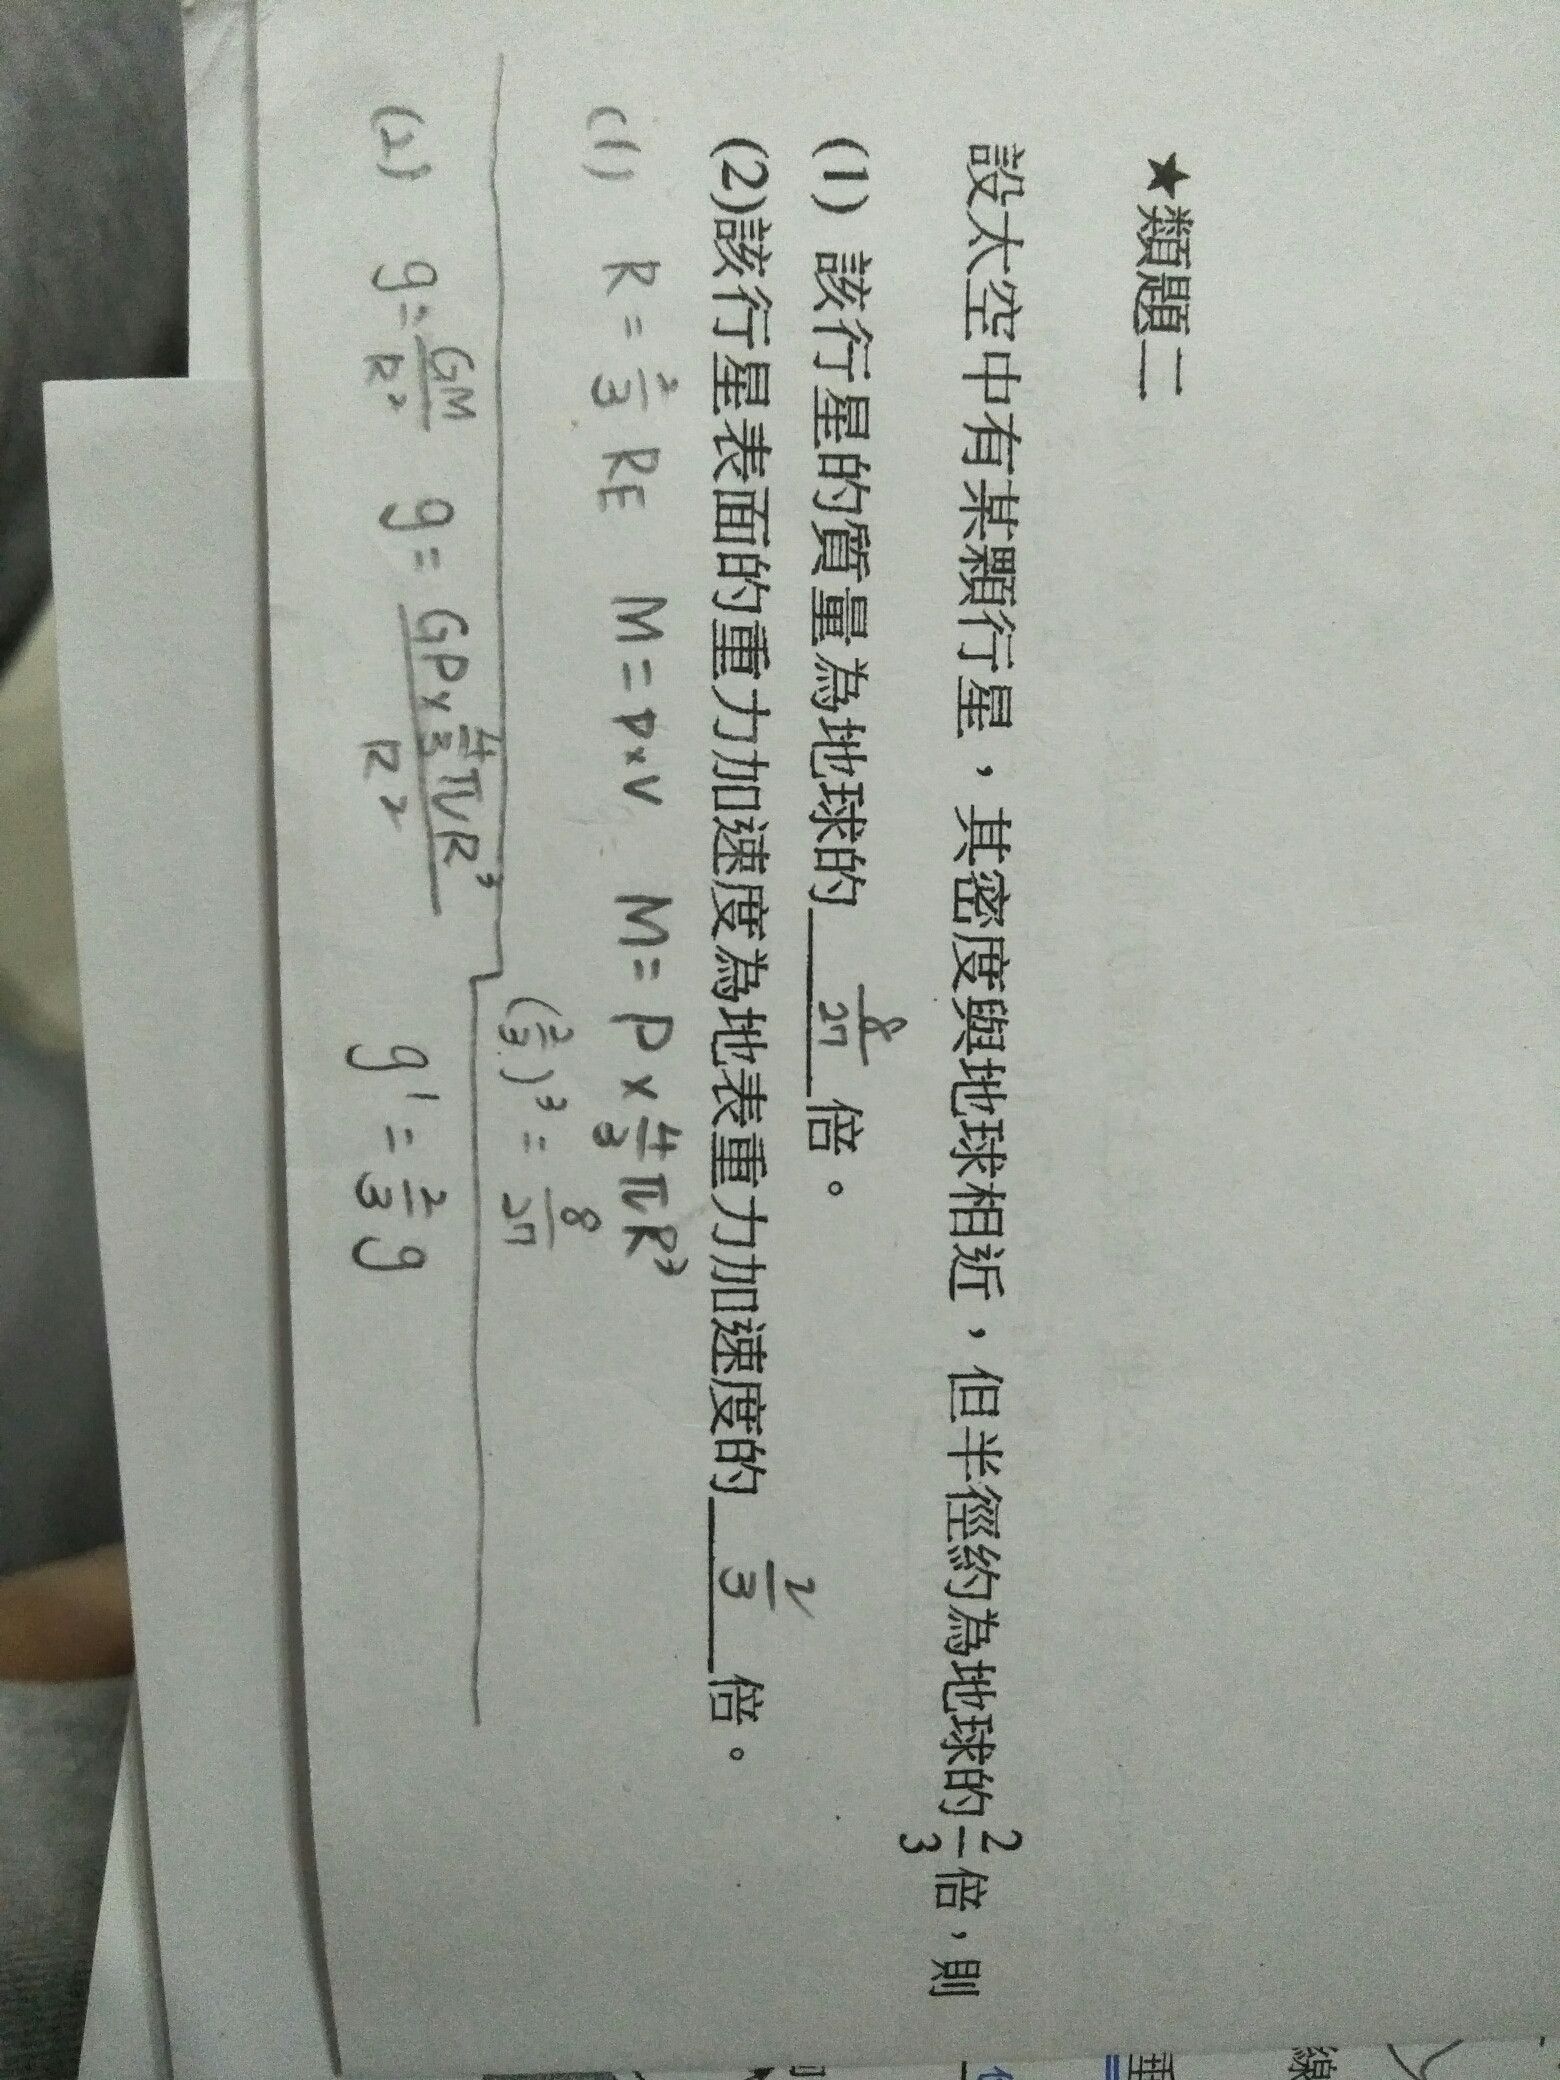 ★類題二
設太空中有某顆行星，其密度與地球相近，但半徑約為地球的2/3倍，則
(1) 該行星的質量為地球的 8/27 倍。
(2)該行星表面的重力加速度為地表重力加速度的 2/3 倍。
(1) R = 2/3 RE M = P×V M = P × 4/3 πR³
(2/3)³ = 8/27
(2) g = GM/R² g = GP×4/3πR³/R² g' = 2/3 g
線